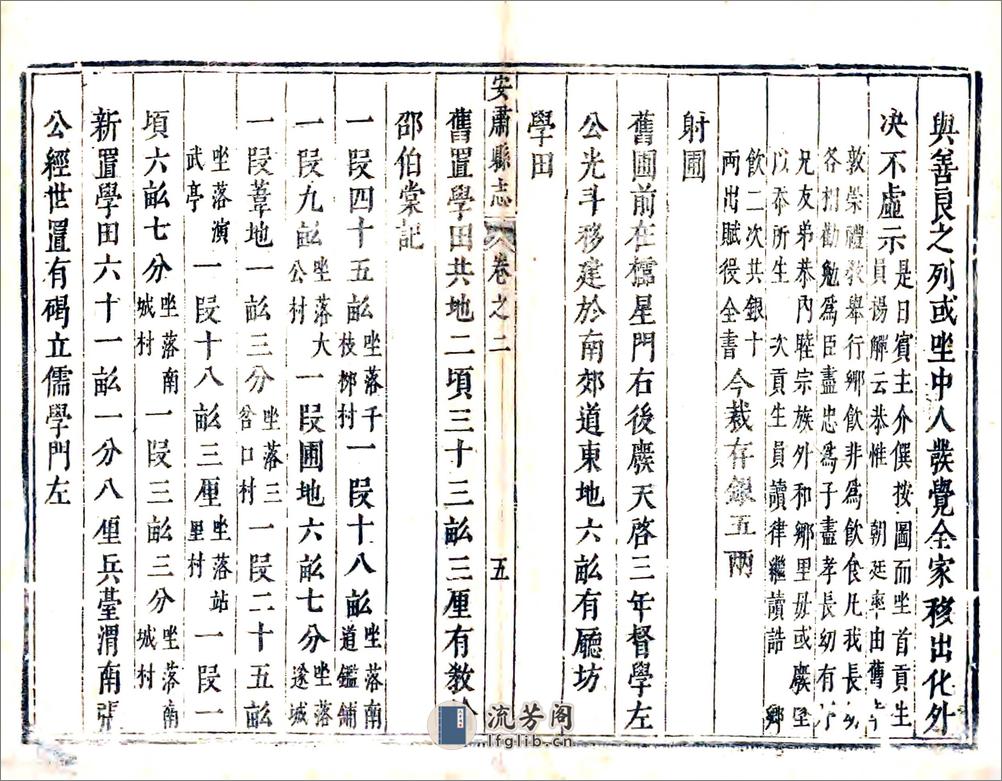 與善良之列或坐中人發覺全家移出化外
決不虛示
是日賓主介僎按圖而坐首貢生
員揚觶云恭惟 朝廷率由舊
敦崇禮教舉行鄉飲非為飲食凡我長幼
各相勸勉為臣盡忠為子盡孝長幼有
兄友弟恭內睦宗族外和鄉里毋或廢墜
以忝所生 次貢生員讀律繼讀誥 鄉
飲二次共銀十
兩出賦役全書
今裁存銀五兩
射圃
舊圃前在櫺星門右後廢天啓三年督學左
公光斗移建於南郊道東地六畝有廳坊
學田
安肅縣志 卷之二 五
舊置學田共地二頃三十三畝三厘有教諭
邵伯棠記
一段四十五畝坐落于枝柳村一段十八畝坐落南道鑑鋪
一段九畝坐落大公村一段圃地六畝七分坐落遂城
一段葦地一畝三分坐落三岔口村一段二十五畝
坐落演武亭一段十八畝三厘坐落站里村一段一
頃六畝七分坐落南城村一段三畝三分坐落南城村
新置學田六十一畝一分八厘兵臺渭南張
公經世置有碣立儒學門左
流芳阁
lfglib.cn